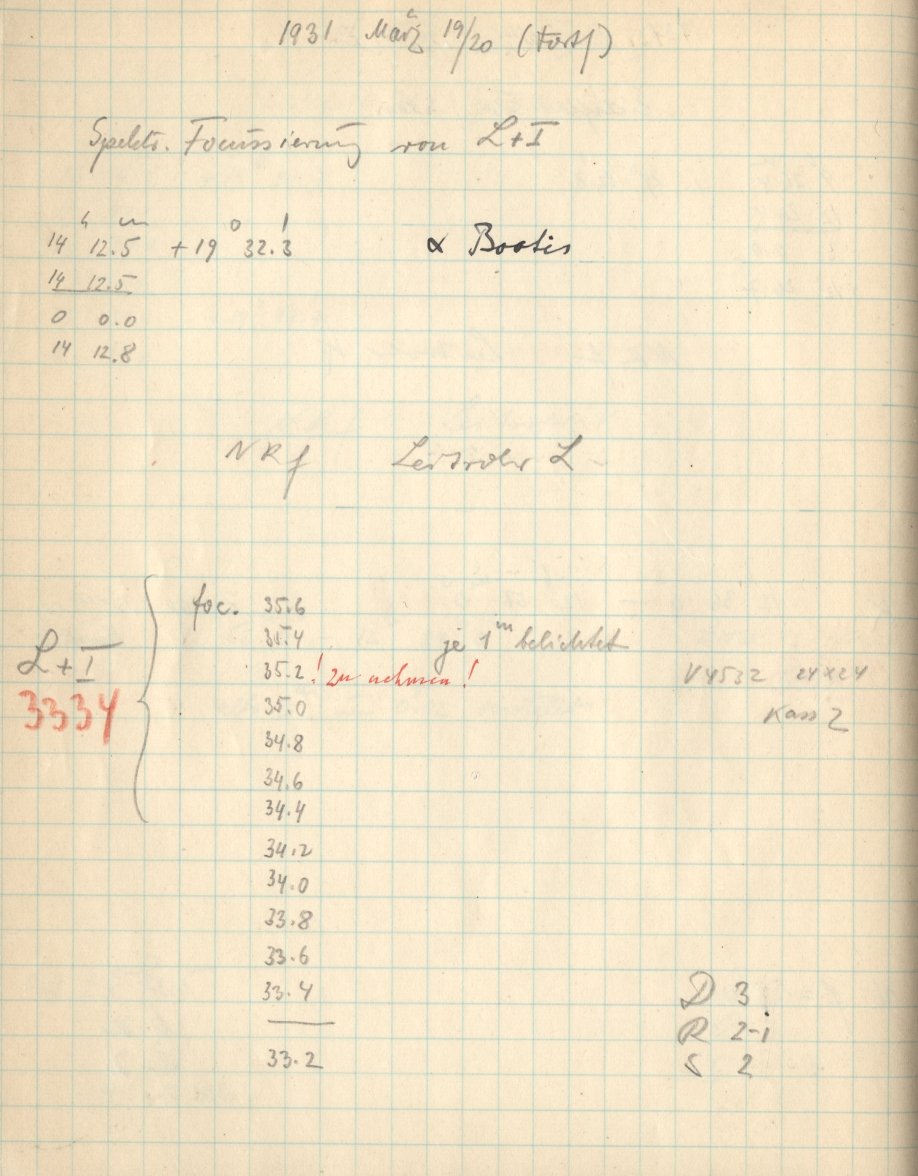 1931 März 19/20 (Forts)
Spektr. Focussierung von L+I
h m o '
14 12.5 +19 32.3 α Bootis
14 12.5
0 0.0
14 12.8
NRf Leitrohr L
foc. 35.6
35.4 je 1m belichtet
L+I
35.2 ! zu nehmen! V4532 24×24
3334
35.0 Kass 2
34.8
34.6
34.4
34.2
34.0
33.8
33.6
33.4 D 3
R 2-1
33.2 S 2